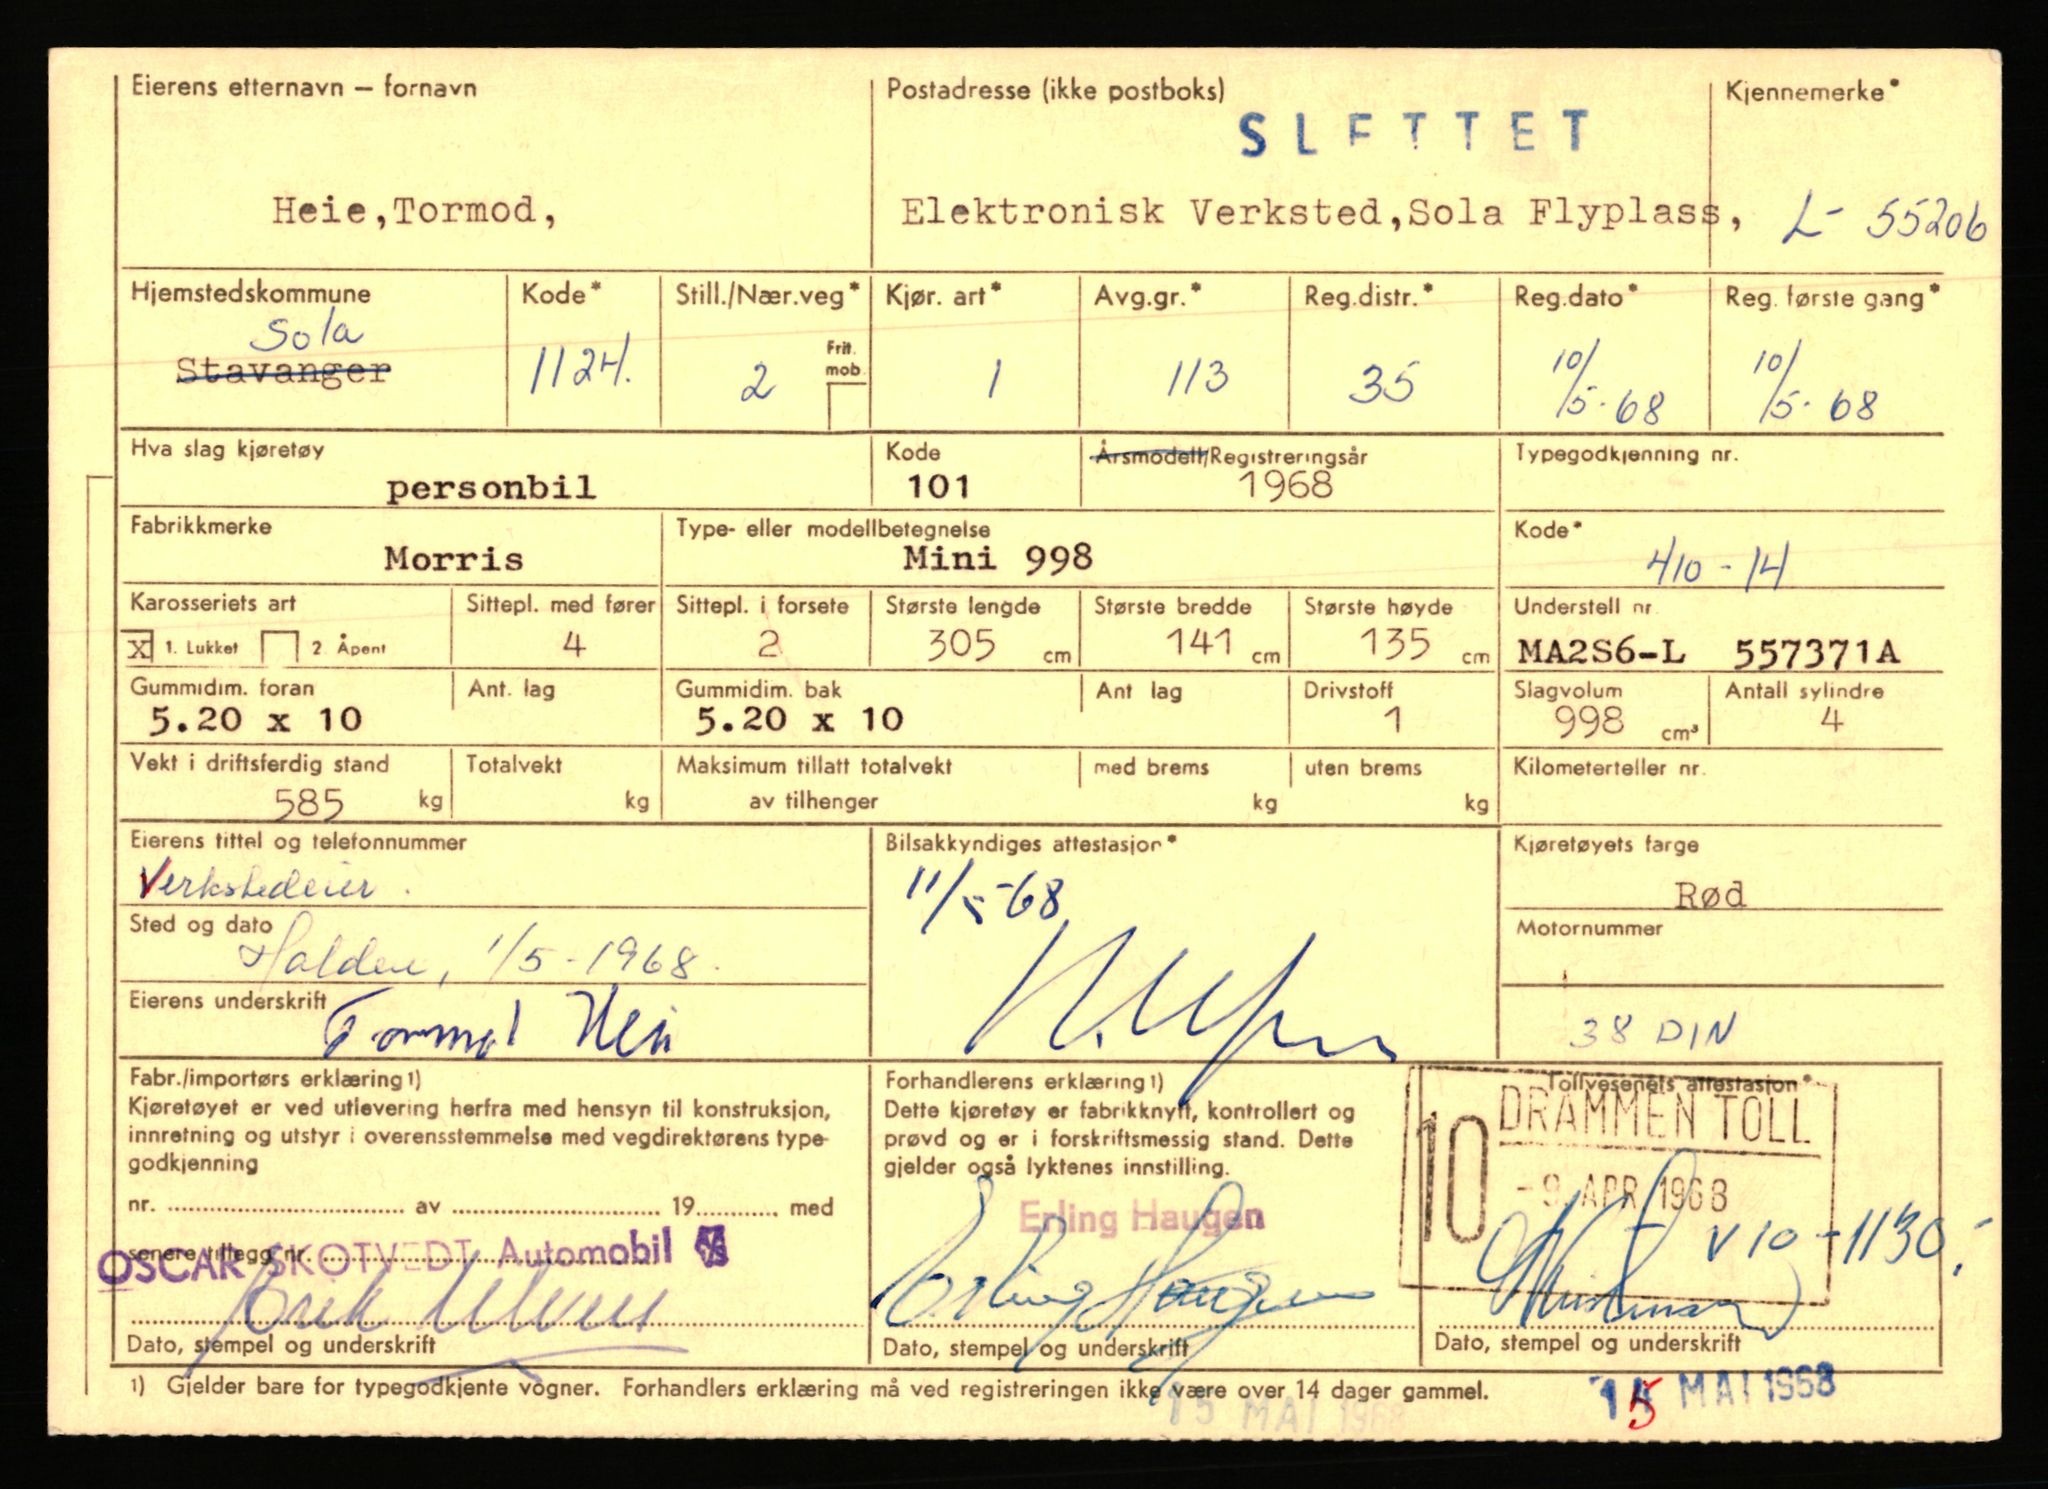 Eierens etternavn — fornavn
Postadresse (ikke postboks)
Kjennemerke*
SLETTET
Heie,Tormod,
Elektronisk Verksted,Sola Flyplass,
L- 55206
Hjemstedskommune
Kode*
Still./Nær.veg*
Kjør. art*
Avg.gr.*
Reg.distr.*
Reg.dato*
Reg. første gang*
Sola
Stavanger
1124.
2
Frit. mob.
1
113
35
10/5-68
10/5-68
Hva slag kjøretøy
Kode
Årsmodell/Registreringsår
Typegodkjenning nr.
personbil
101
1968
Fabrikkmerke
Type- eller modellbetegnelse
Kode*
Morris
Mini 998
410-14
Karosseriets art
Sittepl. med fører
Sittepl. i forsete
Største lengde
Største bredde
Største høyde
Understell nr.
X 1. Lukket 2. Åpent
4
2
305 cm
141 cm
135 cm
MA2S6-L 557371A
Gummidim. foran
Ant. lag
Gummidim. bak
Ant lag
Drivstoff
Slagvolum
Antall sylindre
5.20 x 10
5.20 x 10
1
998 cm³
4
Vekt i driftsferdig stand
Totalvekt
Maksimum tillatt totalvekt
med brems
uten brems
Kilometerteller nr.
585 kg
kg
av tilhenger
kg
kg
Eierens tittel og telefonnummer
Bilsakkyndiges attestasjon*
Kjøretøyets farge
Verkstedeier.
11/5-68
Rød
Sted og dato
Motornummer
Halden, 1/5-1968.
Eierens underskrift
Tormod Heie
38 DIN
Fabr./importørs erklæring 1)
Forhandlerens erklæring 1)
Tollvesenets attestasjon*
Kjøretøyet er ved utlevering herfra med hensyn til konstruksjon,
innretning og utstyr i overensstemmelse med vegdirektørens type-
godkjenning
nr. .......... av .......... 19.......... med
senere tillegg nr. ..........
Dette kjøretøy er fabrikknytt, kontrollert og
prøvd og er i forskriftsmessig stand. Dette
gjelder også lyktenes innstilling.
DRAMMEN TOLL
10
-9. APR 1968
Erling Haugen
V10-1130,-
OSCAR SKOTVEDT Automobil
Erling Haugen
Dato, stempel og underskrift
Dato, stempel og underskrift
Dato, stempel og underskrift
1) Gjelder bare for typegodkjente vogner. Forhandlers erklæring må ved registreringen ikke være over 14 dager gammel.
15 MAI 1968
15 MAI 1968